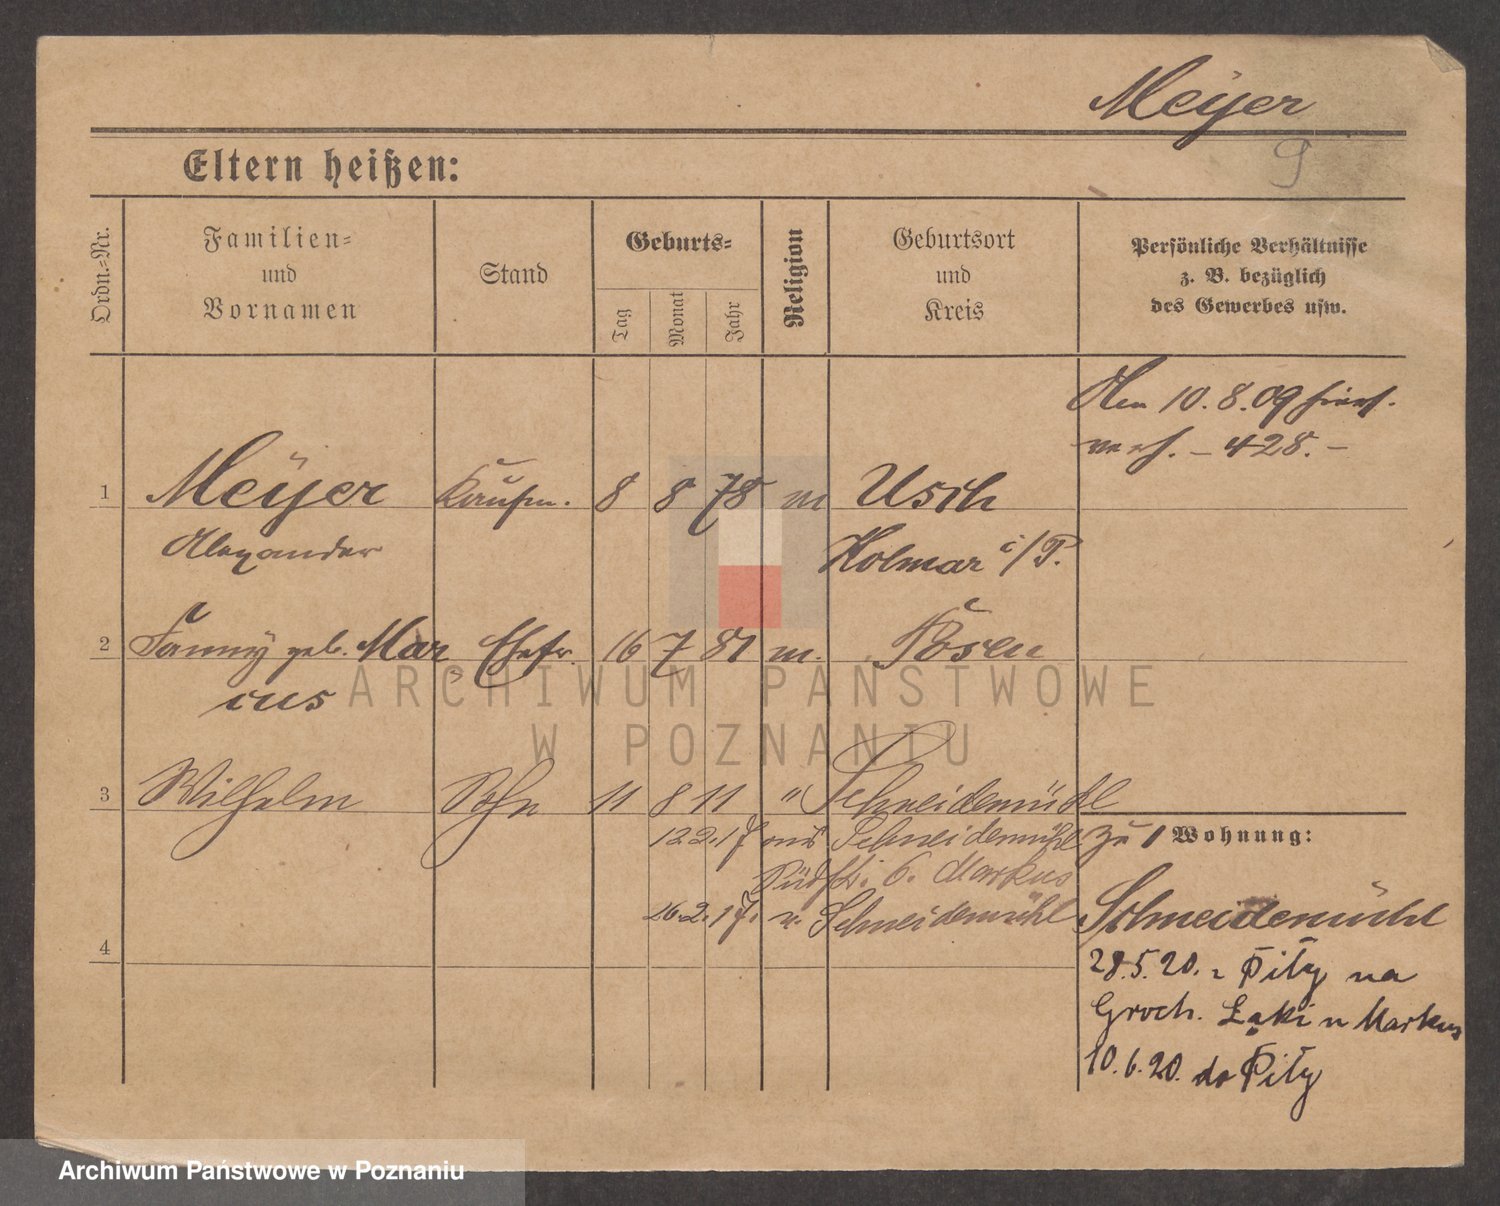 Meÿer
9
Eltern heißen:
Ordn.-Nr.
Familien-
und
Vornamen
Stand
Geburts-
Tag
Monat
Jahr
Religion
Geburtsort
und
Kreis
Persönliche Verhältnisse
z. B. bezüglich
des Gewerbes usw.
Den 10. 8. 09
– 428. –
1 Meÿer Kaufm. 8 8 78 m Usch
Alexander Kolmar i/P.
2 Fanny geb. Mar Ehefr. 16 7 81 m. Posen
cus
3 Wilhelm Sohn 11 8 11 " Schneidemühl
12.2.17 aus Schneidemühl zu
6. Markus
26.2.17. n. Schneidemühl
4
Wohnung:
Schneidemühl
28.5.20. z Piły na
Groch. Łąki u Markus
10.6.20. do Piły
ARCHIWUM PAŃSTWOWE
W POZNANIU
Archiwum Państwowe w Poznaniu